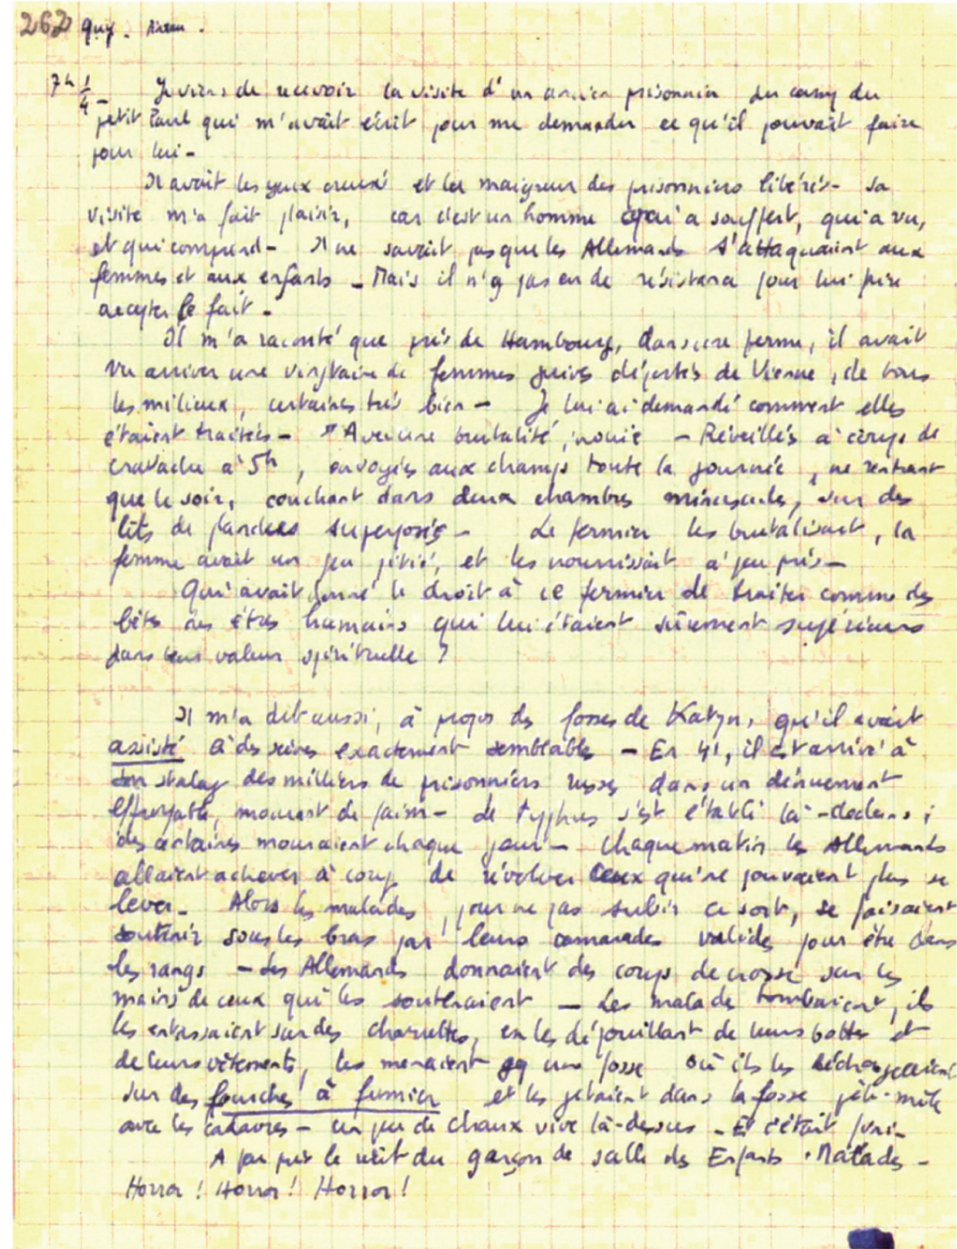 262 guy.
7h 1/4 – Je viens de recevoir la visite d'un ancien prisonnier du camp du
petit Paul qui m'avait écrit pour me demander ce qu'il pouvait faire
pour lui –
Il avait les yeux creusés et la maigreur des prisonniers libérés – sa
visite m'a fait plaisir, car c'est un homme qui a souffert, qui a vu,
et qui comprend – Il ne savait pas que les Allemands s'attaquaient aux
femmes et aux enfants – Mais il n'y pas eu de résistance pour lui faire
accepter le fait –
Il m'a raconté que près de Hambourg, dans une ferme, il avait
vu arriver une vingtaine de femmes juives déportées de Vienne, de tous
les milieux, certaines très bien – Je lui ai demandé comment elles
étaient traitées – "Avec une brutalité inouïe – Réveillés à coups de
cravache à 5h, envoyées aux champs toute la journée, ne rentrant
que le soir, couchant dans deux chambres minuscules, sur des
lits de planches superposés – Le fermier les brutalisait, la
femme avait un peu pitié, et les nourrissait à peu près –
Qui avait donné le droit à ce fermier de traiter comme des
bêtes des êtres humains qui lui étaient sûrement supérieurs
dans leur valeur spirituelle ?
Il m'a dit aussi, à propos des fosses de Katyn, qu'il avait
assisté à des scènes exactement semblables – En 41, il est arrivé à
son stalag des milliers de prisonniers russes dans un dénuement
effroyable, mourant de faim – le typhus s'est établi là-dedans ;
des centaines mouraient chaque jour – Chaque matin les Allemands
allaient achever à coup de révolver ceux qui ne pouvaient plus se
lever – Alors les malades, pour ne pas subir ce sort, se faisaient
soutenir sous les bras par leurs camarades valides pour être dans
les rangs – Les Allemands donnaient des coups de crosse sur les
mains de ceux qui les soutenaient – Les malades tombaient, ils
les entassaient sur des charrettes, en les dépouillant de leurs bottes et
de leurs vêtements, les menaient à une fosse où ils les déchargeaient
sur des fourches à fumier et les jetaient dans la fosse pêle-mêle
avec les cadavres – un peu de chaux vive là-dessus – Et c'était fini –
le récit du garçon de salle des Enfants-Malades –
Horror ! Horror ! Horror !